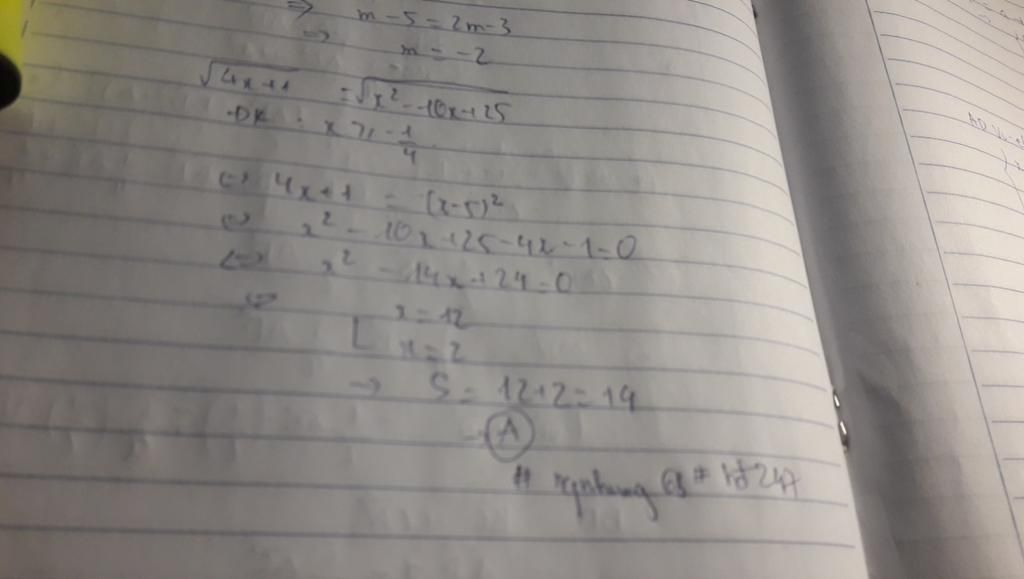 ⇒ m - 5 = 2m - 3
⇒ m = -2
√4x+1 = √x² - 10x + 25
ĐK : x ≥ -1/4
⇔ 4x+1 = (x-5)²
⇔ x² - 10x + 25 - 4x - 1 = 0
⇔ x² - 14x + 24 = 0
⇔ [ x = 12
x = 2
→ S = 12+2 = 14
A